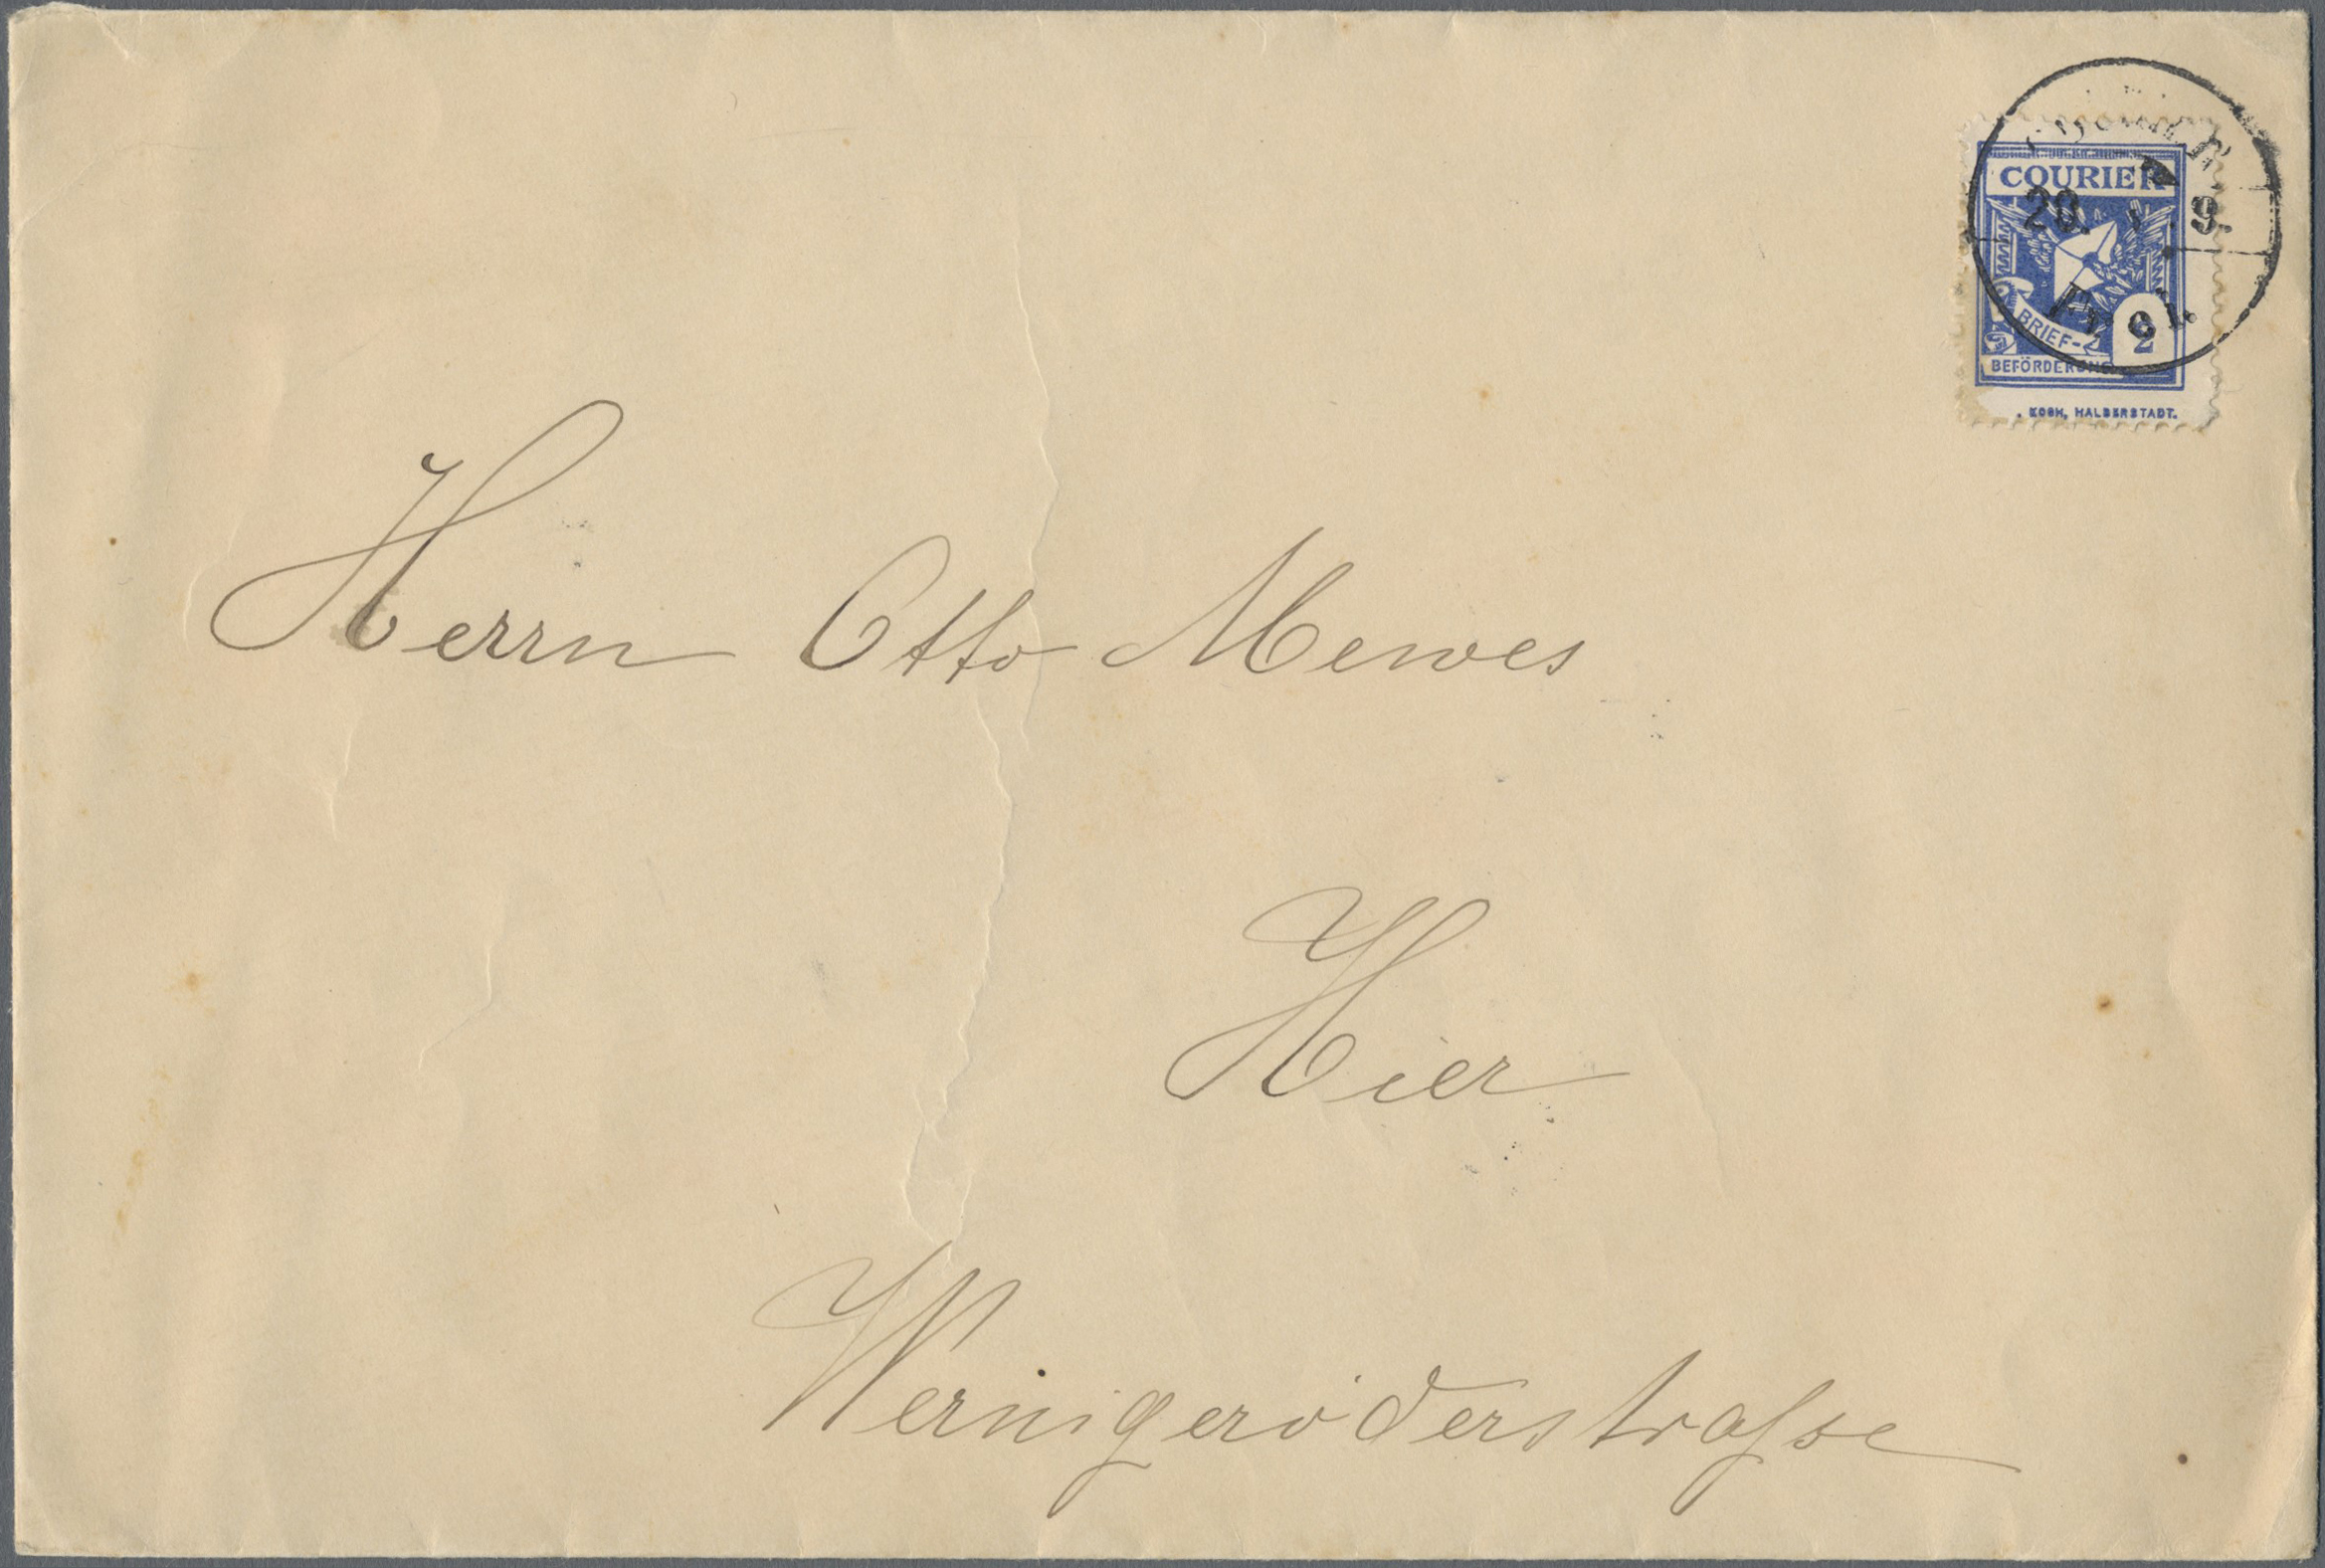 COURIER
20. 9.
BRIEF-
2
BEFÖRDERUNG
KOCH, HALBERSTADT.
Herrn Otto Mewes
Hier
Wernigeröderstrasse